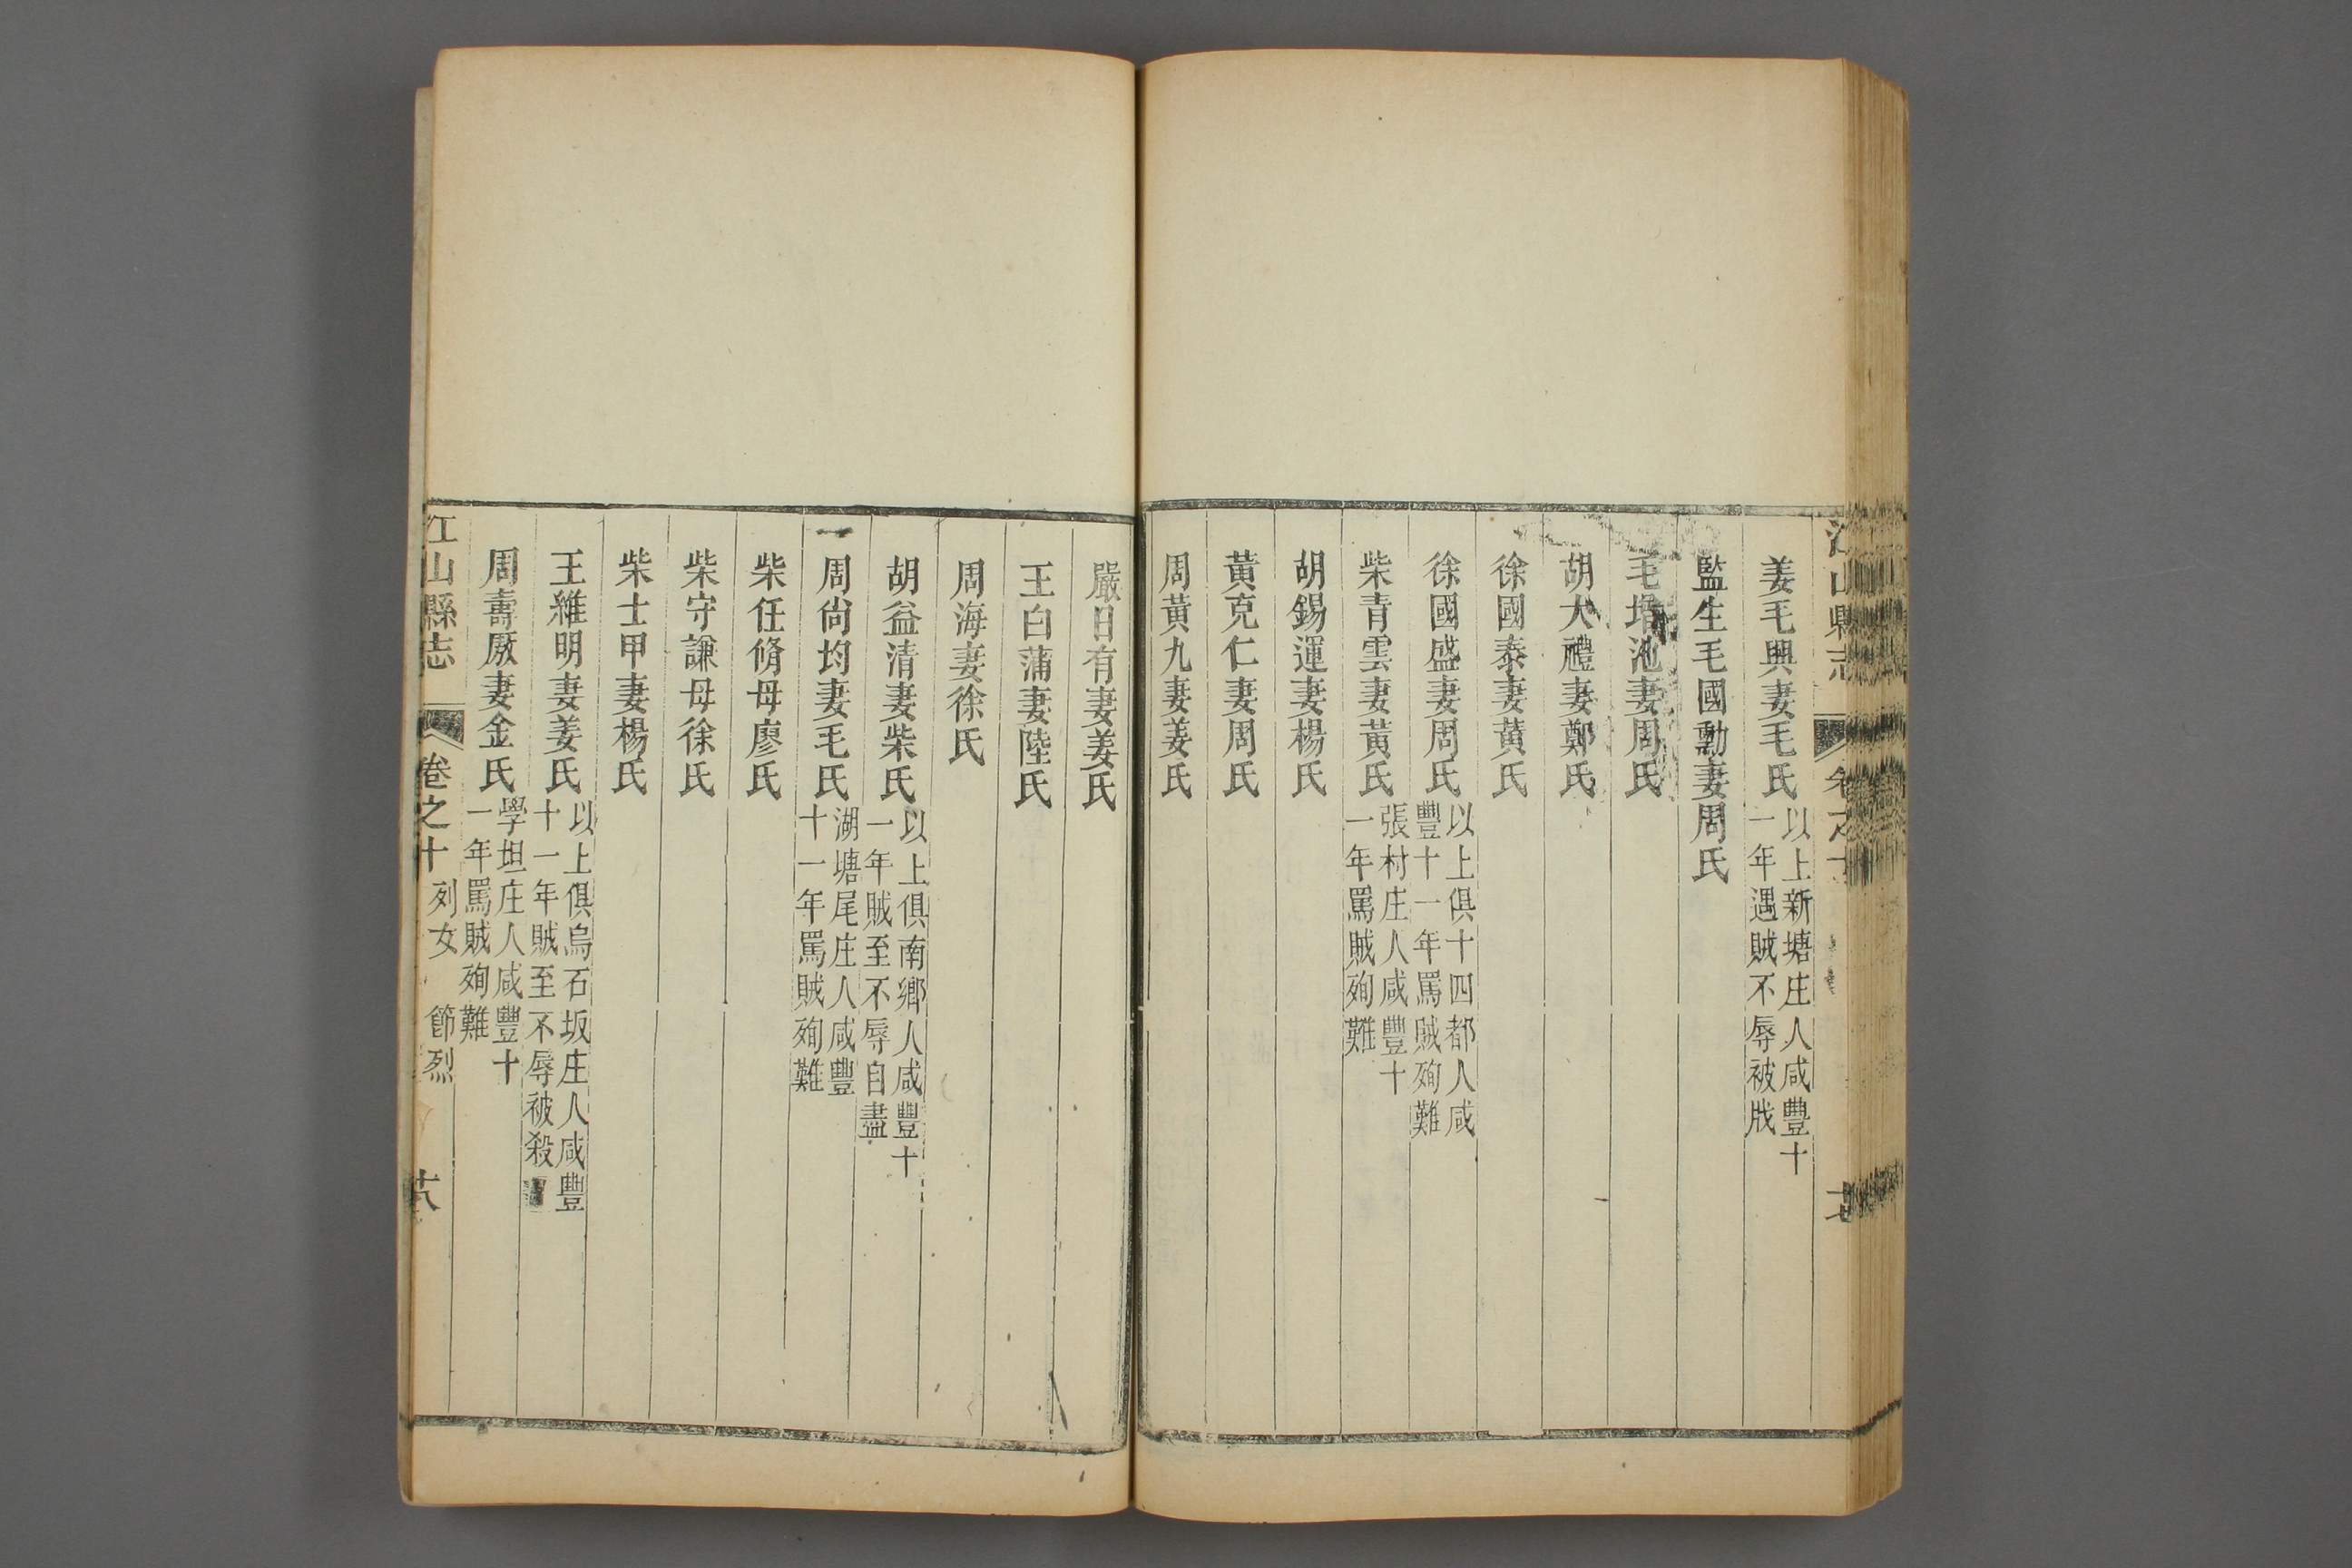 江山縣志 卷之十
姜毛興妻毛氏以上新塘庄人咸豐十一年遇賊不辱被戕
監生毛國勳妻周氏
毛增池妻周氏
胡大禮妻鄭氏
徐國泰妻黃氏
徐國盛妻周氏以上俱十四都人咸豐十一年罵賊殉難
柴青雲妻黃氏張村庄人咸豐十一年罵賊殉難
胡錫運妻楊氏
黃克仁妻周氏
周黃九妻姜氏
嚴日有妻姜氏
王白蒲妻陸氏
周海妻徐氏
胡益清妻柴氏以上俱南鄉人咸豐十一年賊至不辱自盡
周尙均妻毛氏湖塘尾庄人咸豐十一年罵賊殉難
柴任脩母廖氏
柴守謙母徐氏
柴士甲妻楊氏
王維明妻姜氏以上俱烏石坂庄人咸豐十一年賊至不辱被殺
周壽厫妻金氏學坦庄人咸豐十一年罵賊殉難
江山縣志 卷之十 列女 節烈 十八